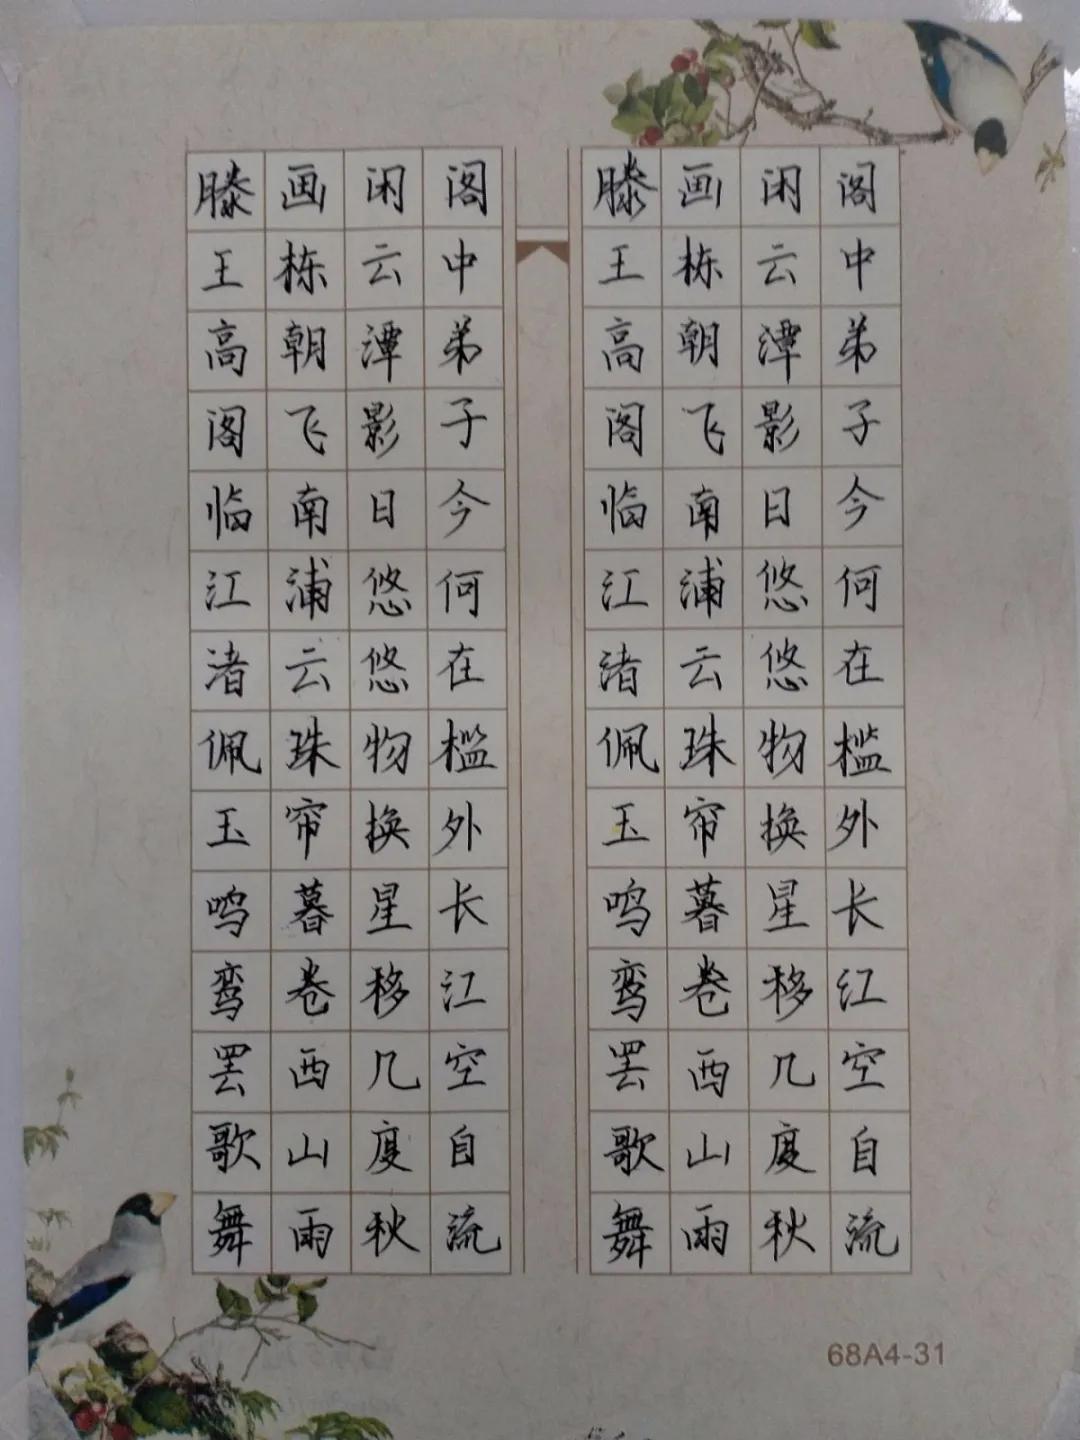 滕王高阁临江渚佩玉鸣鸾罢歌舞
画栋朝飞南浦云珠帘暮卷西山雨
闲云潭影日悠悠物换星移几度秋
阁中弟子今何在槛外长江空自流
滕王高阁临江渚佩玉鸣鸾罢歌舞
画栋朝飞南浦云珠帘暮卷西山雨
闲云潭影日悠悠物换星移几度秋
阁中弟子今何在槛外长江空自流
68A4-31